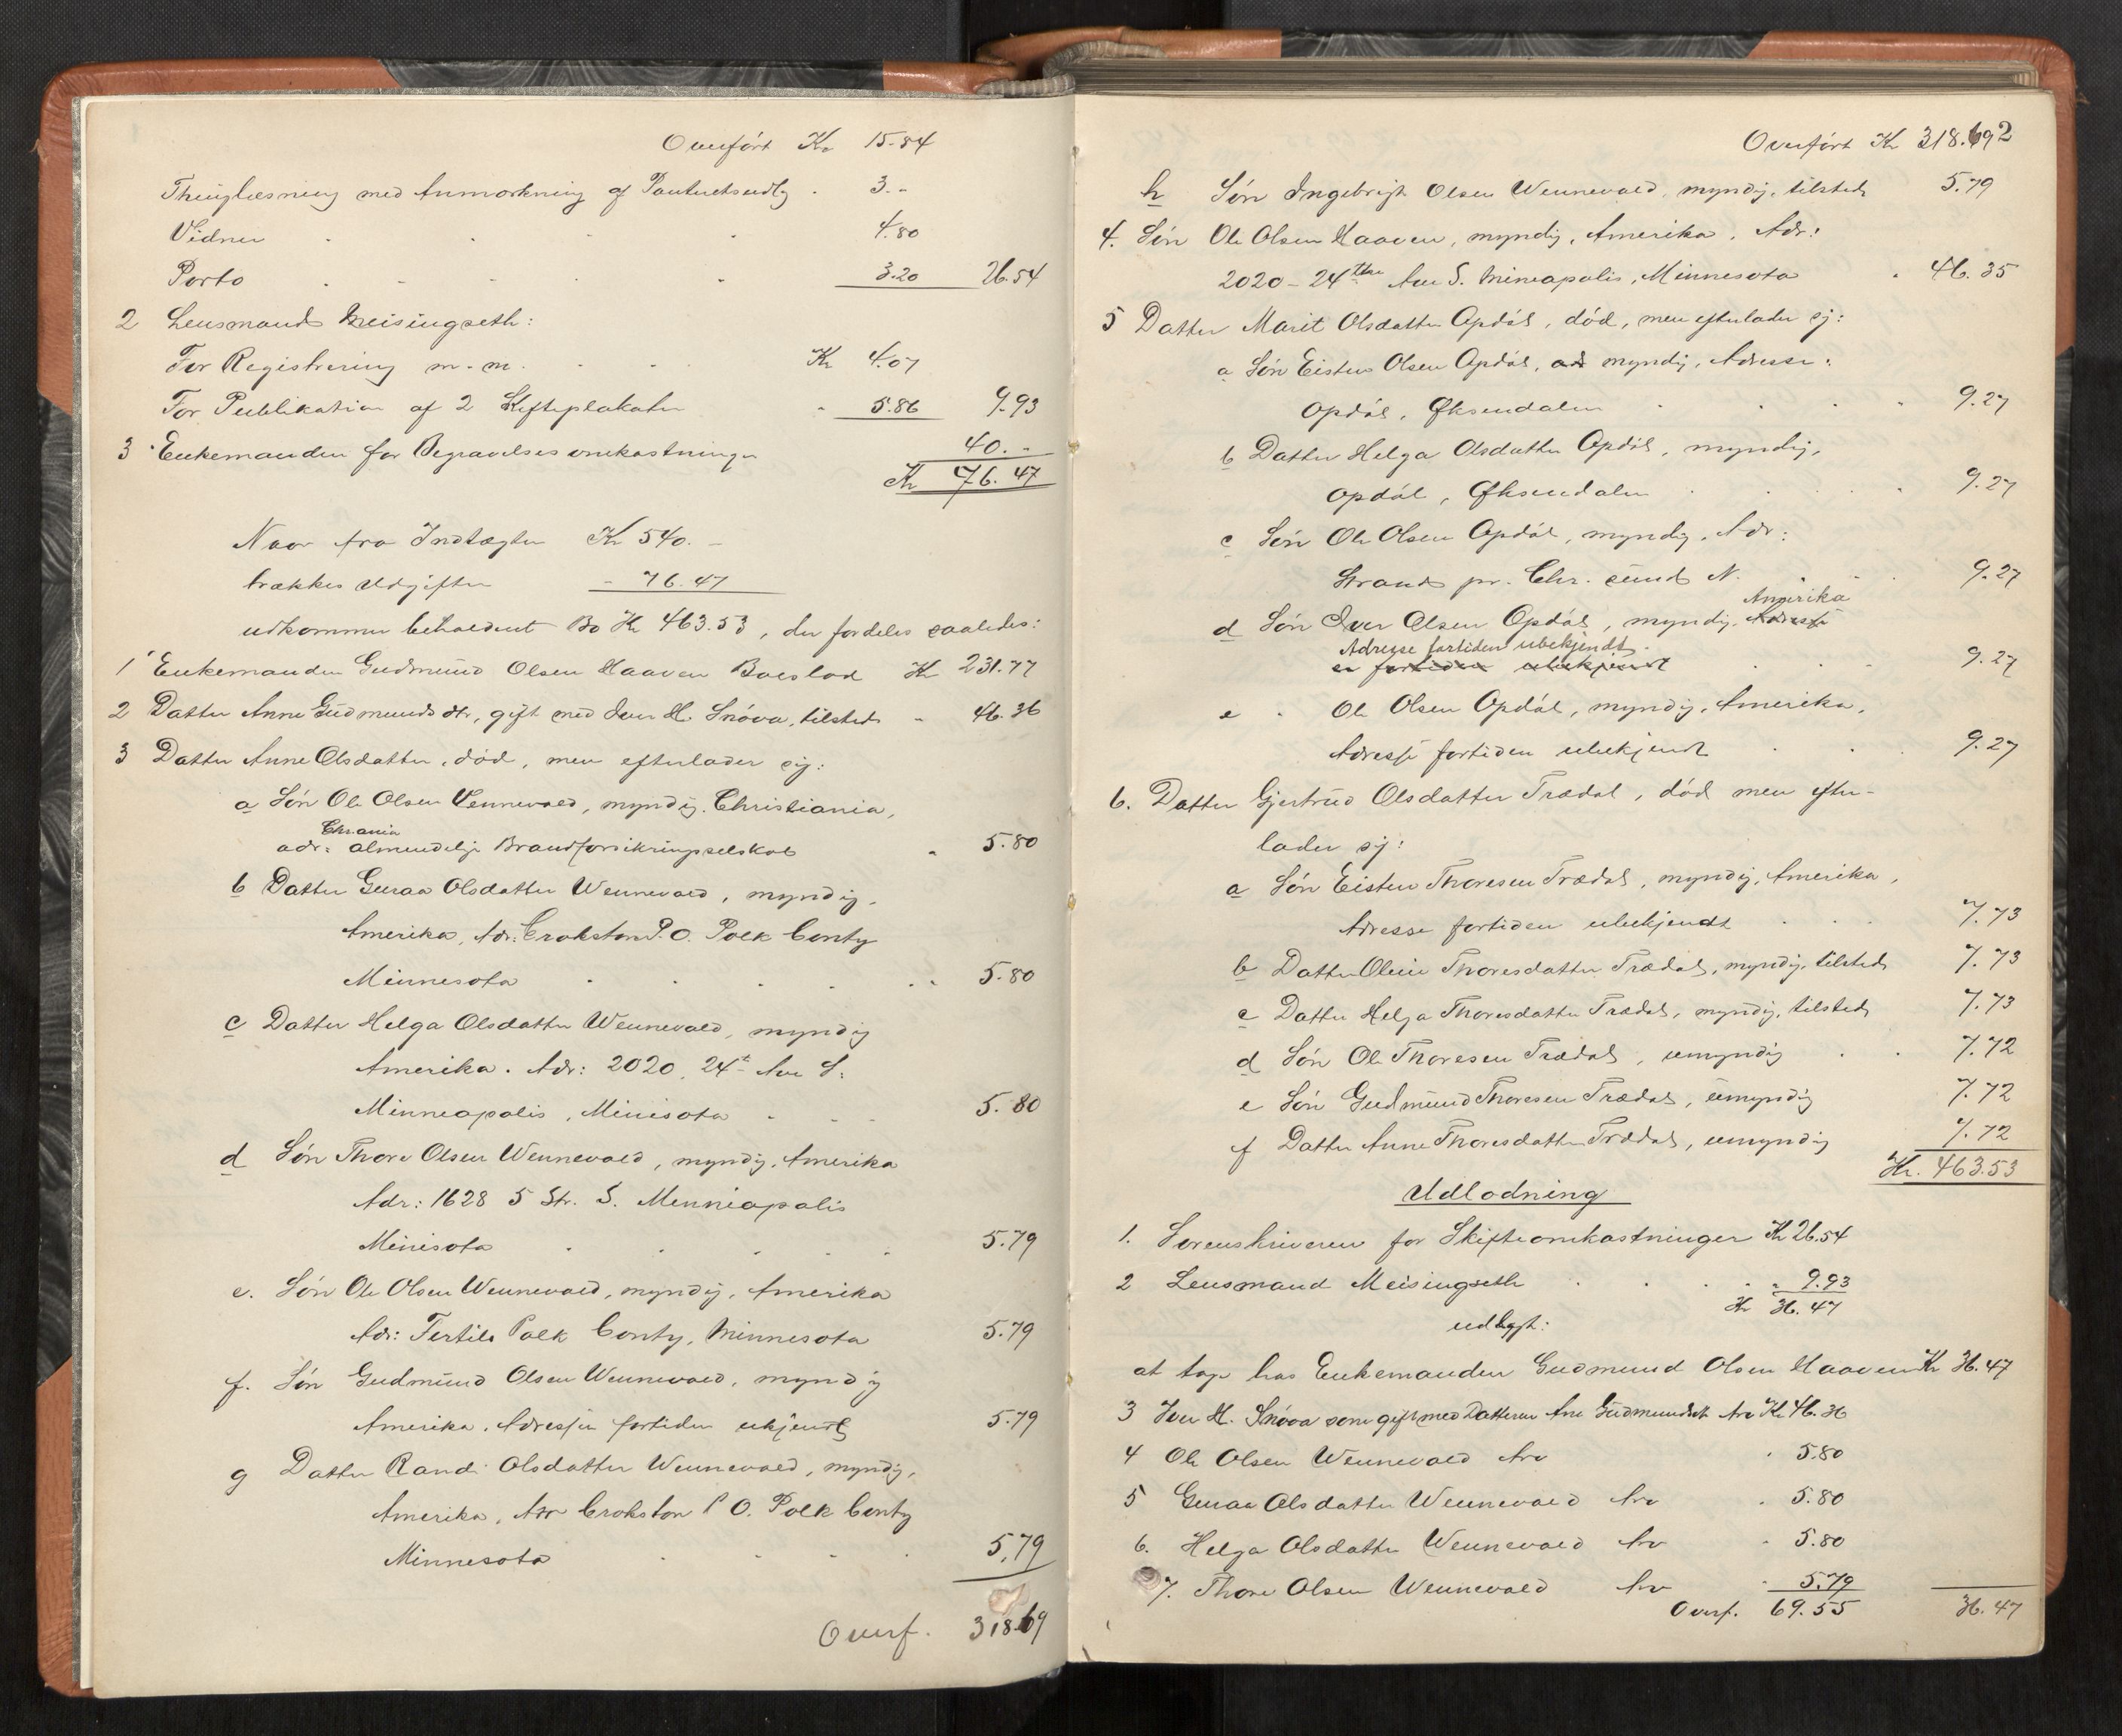 Overført Kr 15.84
Thinglæsning med Anmærkning af Panteretsudlg. 3.-
Vidner 4.80
Porto 3.20 26.54
2 Lensmand Meisingseth:
For Registrering m.m. Kr 4.07
For Publikation af 2 Skifteplakater " 5.86 9.93
3 Enkemanden for Begravelsesomkostninger 40.-
Kr 76.47
Naar fra Indtægten Kr 540.-
trækkes Udgiften - 76.47
udkommer beholdent Bo Kr 463.53, der fordeles saaledes:
1 Enkemanden Gudmund Olsen Haaven Boeslod Kr 231.77
2 Datter Anne Gudmundsdtr, gift med Iver H. Snöva, tilsteds " 46.36
3 Datter Anne Olsdatter, död, men efterlader sig:
a Sön Ole Olsen Vennevold, myndig. Christiania,
Chr.ania
adr: almindelige Brandforsikringsselskab " 5.80
b Datter Guraa Olsdatter Wennevold, myndig,
Amerika, Adr: Crokston P.O. Polk Conty
Minnesota 5.80
c Datter Helga Olsdatter Wennevold, myndig
Amerika. Adr: 2020, 24t Ave S:
Minneapolis, Minisota 5.80
d Sön Thore Olsen Wennevold, myndig, Amerika
Adr: 1628 5 Str. S. Menniapolis
Minisota 5.79
e. Sön Ole Olsen Wennevold, myndig, Amerika
Adr: Fertile Polk Conty, Minnesota 5.79
f. Sön Gudmund Olsen Wennevold, myndig
Amerika. Adresse fortiden ukjendt 5.79
g Datter Randi Olsdatter Wennevold, myndig,
Amerika, Adr Crokston P O. Polk Conty
Minnesota 5.79
Overf. 318.69
Overført Kr 318.69 2
h Sön Ingebrigt Olsen Wennevold, myndig, tilsteds 5.79
4. Sön Ole Olsen Haaven, myndig, Amerika, Adr:
2020 - 24the Ave S. Mineapolis, Minnesota " 46.35
5 Datter Marit Olsdatter Opdöl, död, men efterlader sig:
a Sön Eisten Olsen Opdöl, myndig, Adresse:
Opdöl, Øksendalen 9.27
b Datter Helga Olsdatter Opdöl, myndig,
Opdöl, Øksendalen 9.27
c Sön Ole Olsen Opdöl, myndig, Adr:
Strand pr. Chr. sund N. 9.27
Amerika
d Sön Iver Olsen Opdöl, myndig, Adresse
Adresse fortiden ubekjendt.
er fortiden ubekjendt 9.27
e " Ole Olsen Opdöl, myndig, Amerika,
Adresse fortiden ubekjendt 9.27
6. Datter Gjertrud Olsdatter Trædal, död men efter-
lader sig:
a Sön Eisten Thoresen Trædal, myndig, Amerika,
Adresse fortiden ubekjendt 7.73
b Datter Oline Thoresdatter Trædal, myndig, tilsteds 7.73
c Datter Helga Thoresdatter Trædal, myndig, tilsteds 7.73
d Sön Ole Thoresen Trædal, umyndig 7.72
e Sön Gudmund Thoresen Trædal, umyndig 7.72
f Datter Anne Thoresdatter Trædal, umyndig 7.72
Kr. 463.53
Udlodning
1. Sorenskriveren for Skifteomkostninger Kr 26.54
2 Lensmand Meisingseth " 9.93
Kr 36.47
udlagt:
at tage hos Enkemanden Gudmund Olsen Haaven Kr 36.47
3 Iver H. Snöva som gift med Datteren Ane Gudmundsdt Arv Kr 46.36
4 Ole Olsen Wennevold Arv " 5.80
5 Guraa Olsdatter Wennevold Arv " 5.80
6. Helga Olsdatter Wennevold Arv " 5.80
7. Thore Olsen Wennevold Arv " 5.79
Overf. 69.55 36.47